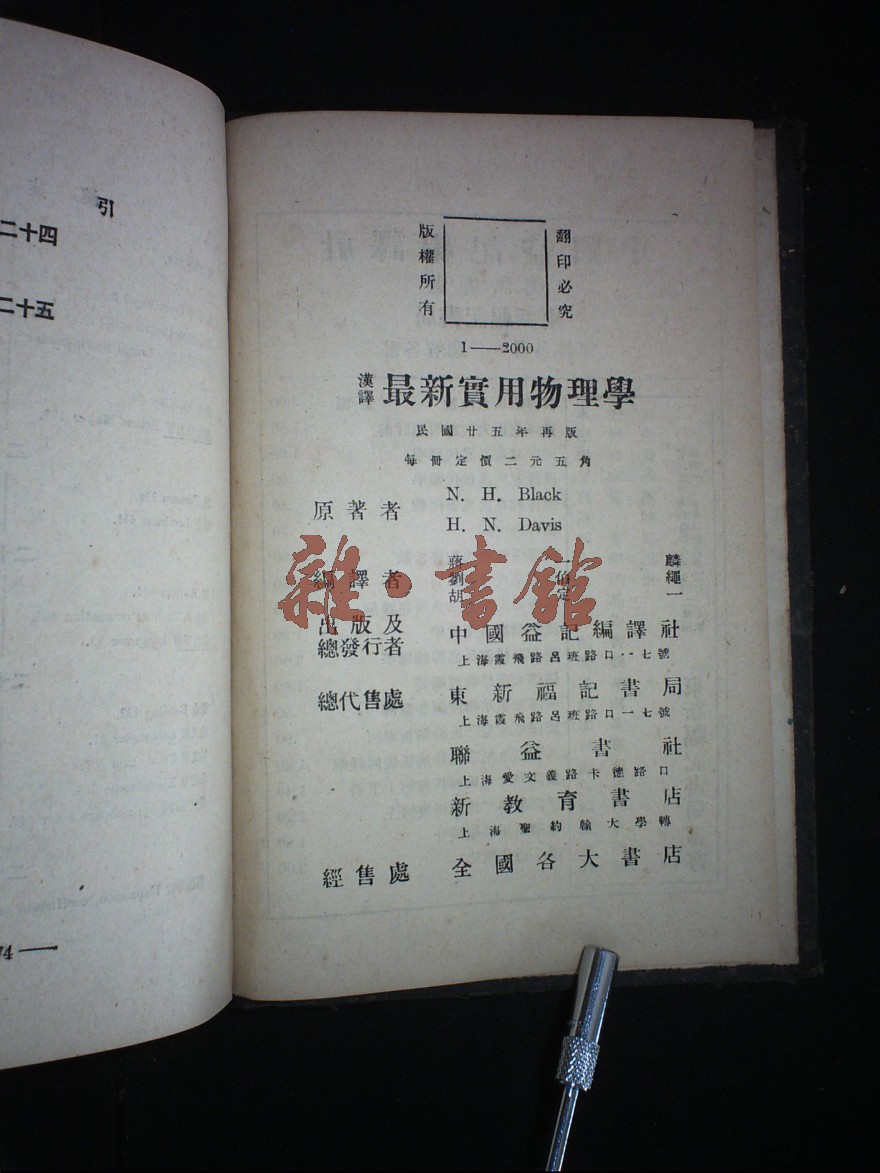 引
二十四
二十五
版權所有
翻印必究
1——2000
漢譯 最新實用物理學
民國廿五年再版
每冊定價二元五角
原著者
N. H. Black
H. N. Davis
編譯者
蔣一麟
劉伯繩
胡定一
出版及
總發行者
中國益記編譯社
上海霞飛路呂班路口一七號
總代售處
東新福記書局
上海霞飛路呂班路口一七號
聯益書社
上海愛文義路卡德路口
新教育書店
上海聖約翰大學轉
經售處
全國各大書店
雜·書館